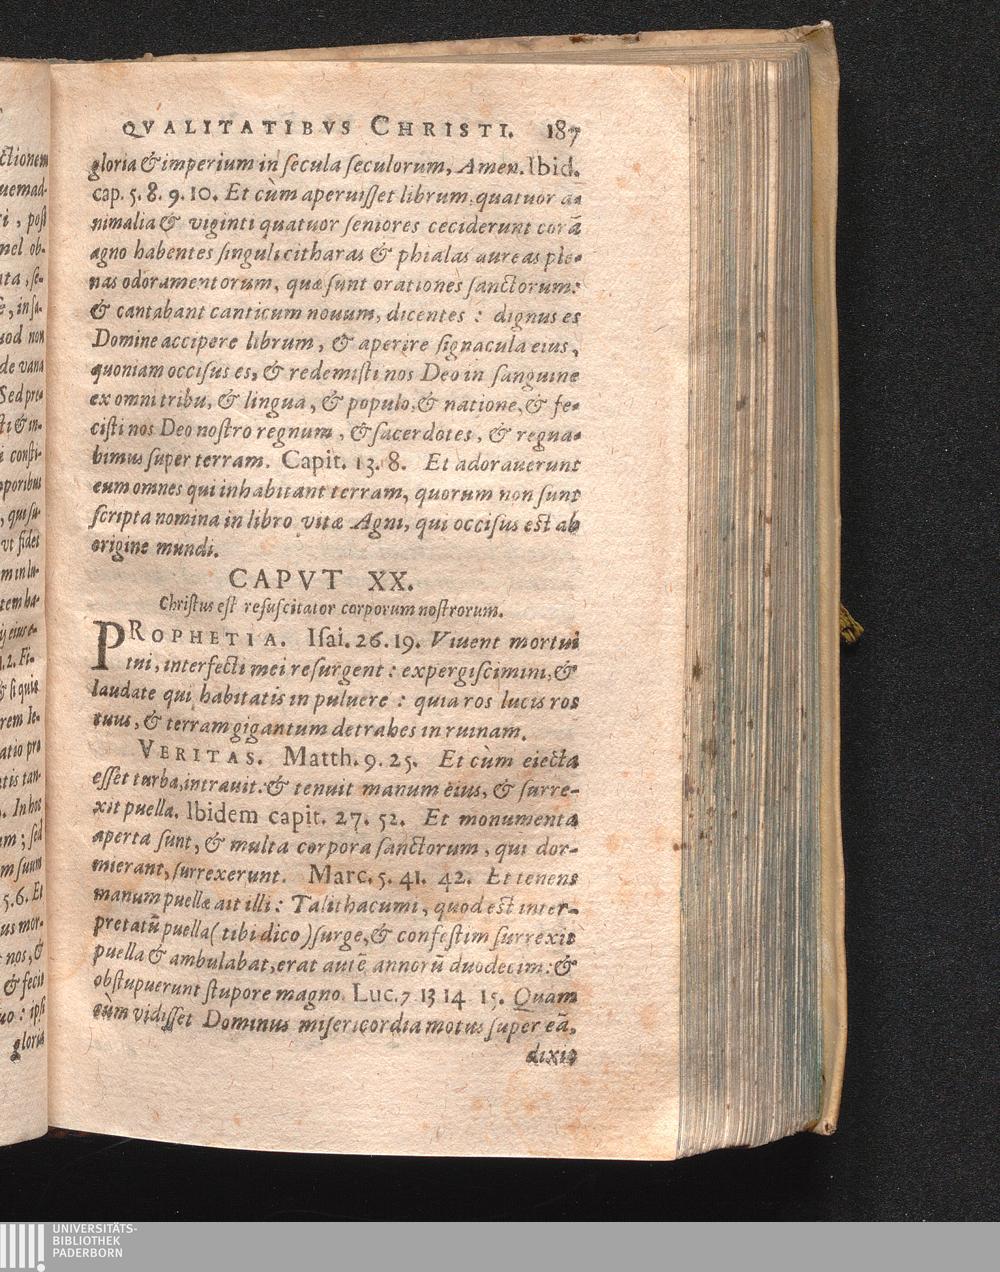 QVALITATIBVS CHRISTI. 187
gloria & imperium in ſecula ſeculorum, Amen. Ibid.
cap. 5. 8. 9. 10. Et cùm aperuiſſet librum, quatuor a-
nimalia & viginti quatuor ſeniores ceciderunt corā
agno habentes ſinguli citharas & phialas aureas ple-
nas odoramentorum, quæ ſunt orationes ſanctorum:
& cantabant canticum nouum, dicentes : dignus es
Domine accipere librum, & aperire ſignacula eius,
quoniam occiſus es, & redemiſti nos Deo in ſanguine
ex omni tribu, & lingua, & populo, & natione, & fe-
ciſti nos Deo noſtro regnum, & ſacerdotes, & regna-
bimus ſuper terram. Capit. 13. 8. Et adorauerunt
eum omnes qui inhabitant terram, quorum non ſunt
ſcripta nomina in libro vitæ Agni, qui occiſus est ab
origine mundi.
CAPVT XX.
Chriſtus eſt reſuſcitator corporum noſtrorum.
PROPHETIA. Iſai. 26. 19. Viuent mortui
tui, interfecti mei reſurgent : expergiſcimini, &
laudate qui habitatis in puluere : quia ros lucis ros
tuus, & terram gigantum detrahes in ruinam.
VERITAS. Matth. 9. 25. Et cùm eiecta
eſſet turba, intrauit: & tenuit manum eius, & ſurre-
xit puella. Ibidem capit. 27. 52. Et monumenta
aperta ſunt, & multa corpora ſanctorum, qui dor-
mierant, ſurrexerunt. Marc. 5. 41. 42. Et tenens
manum puellæ ait illi : Talithacumi, quod est inter-
pretatū puella ( tibi dico ) ſurge, & confeſtim ſurrexit
puella & ambulabat, erat autē annorū duodecim: &
obſtupuerunt ſtupore magno. Luc. 7 13 14 15. Quam
cùm vidiſſet Dominus miſericordia motus ſuper eā,
dixit
ctionem
uemad-
ri, poſt
mel ob-
ata, ſe-
e, in ſa-
uod non
de vana
Sed pre-
ti & in-
i conſti-
mporibus
, qui ſu-
vt fidei
m in lu-
tem ha-
ij eius e-
1. 2. Fi-
& ſi quis
rem Ie-
atio pro
tis tan-
. In hoc
um ; ſed
m ſuum
5. 6. Et
us mor-
nos, &
& fecit
uo : ipſi
gloria
UNIVERSITÄTS-
BIBLIOTHEK
PADERBORN